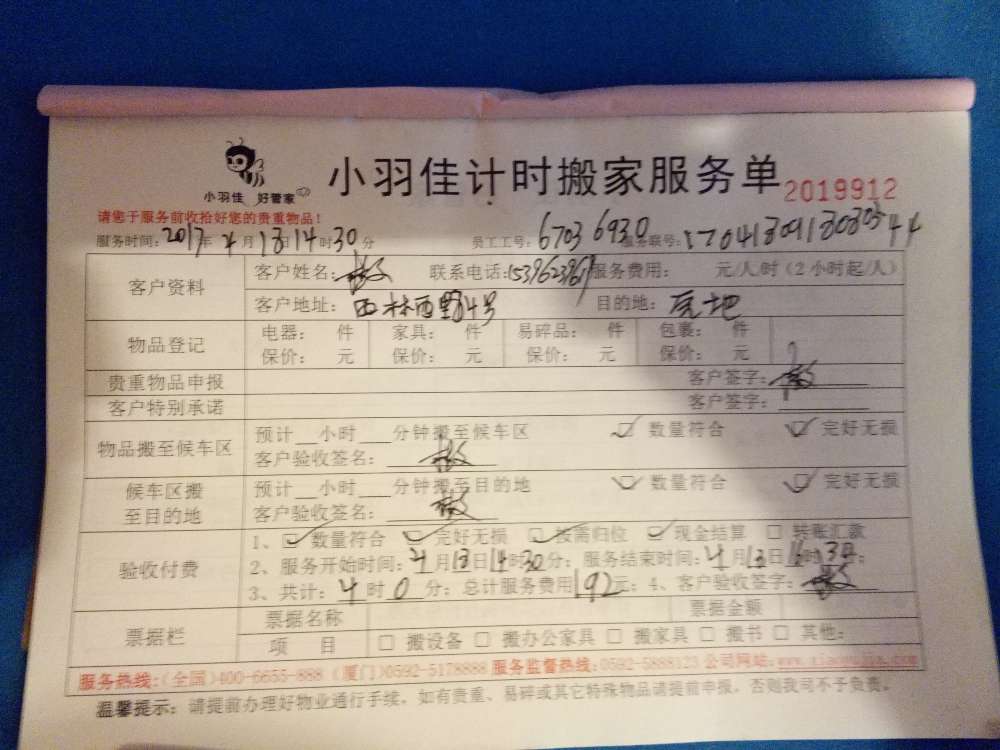 小羽佳 好管家
小羽佳计时搬家服务单 2019912
请您于服务前收拾好您的贵重物品！
服务时间：2017年4月13日14时30分 员工工号：6703 6930 服务联号：
客户资料 客户姓名： 联系电话： 服务费用： 元/人/时（2小时起/人）
客户地址： 目的地：
物品登记 电器： 件 家具： 件 易碎品： 件 包裹： 件
保价： 元 保价： 元 保价： 元 保价： 元
贵重物品申报 客户签字：
客户特别承诺 客户签字：
物品搬至候车区 预计__小时___分钟搬至候车区 数量符合 完好无损
客户验收签名：
候车区搬至目的地 预计__小时___分钟搬至目的地 数量符合 完好无损
客户验收签名：
验收付费 1、 数量符合 完好无损 按需归位 现金结算 转账汇款
2、服务开始时间：4月13日14时30分；服务结束时间：4月13日16时30分；
3、共计：4时0分；总计服务费用192元；4、客户验收签字：
票据栏 票据名称 票据金额
项 目 搬设备 搬办公家具 搬家具 搬书 其他：
服务热线：（全国）400-6655-888（厦门）0592-5178888 服务监督热线：0592-5888123 公司网站：
温馨提示：请提前办理好物业通行手续。如有贵重、易碎或其它特殊物品请提前申报，否则我司不予负责。